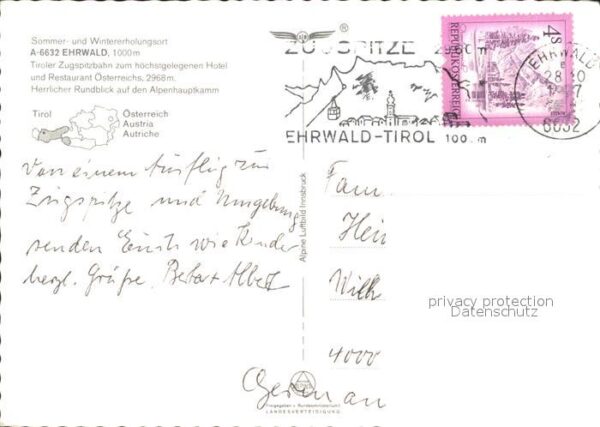 Sommer- und Wintererholungsort
A-6632 EHRWALD, 1000m
Tiroler Zugspitzbahn zum höchstgelegenen Hotel
und Restaurant Österreichs, 2968m.
Herrlicher Rundblick auf den Alpenhauptkamm
Tirol
Österreich
Austria
Autriche
Von einem Ausflug zur
Zugspitze und Umgebung
senden Euch wie Kinder
herzl. Grüße Albert
Alpine Luftbild Innsbruck
ZUGSPITZE 2960 m
EHRWALD-TIROL
4 S
REPUBLIK ÖSTERREICH
EHRWALD
6632
Fam.
Hein
Wilh
4000
German
privacy protection
Datenschutz
Freigegeben v. Bundesministerium f.
LANDESVERTEIDIGUNG